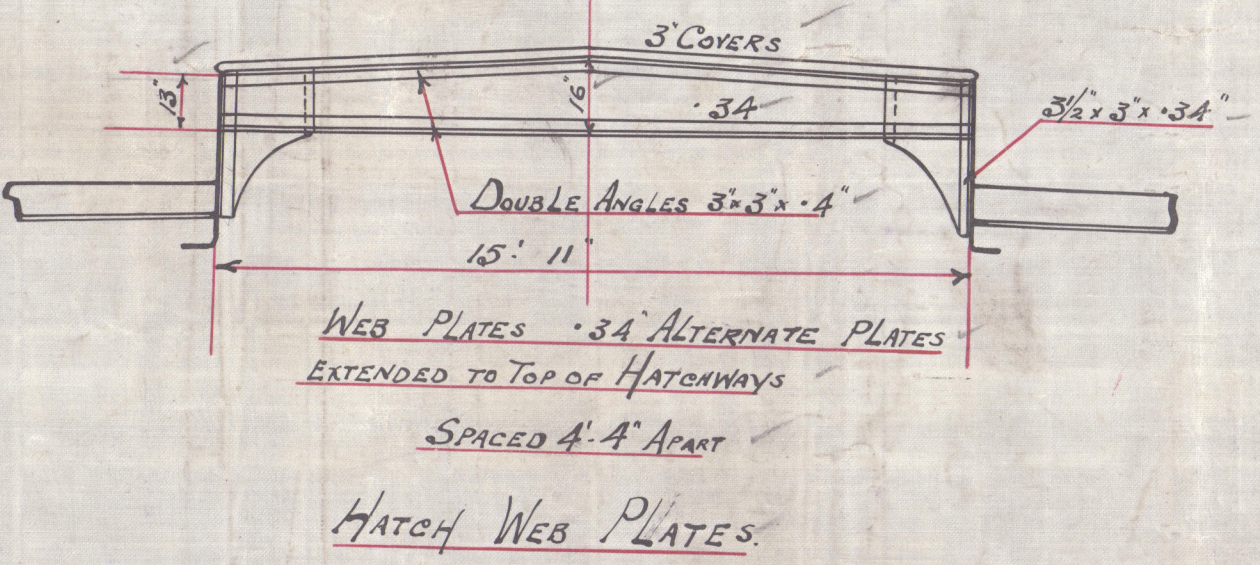 3" COVERS
13"
16"
·34
3½" x 3" x ·34"
DOUBLE ANGLES 3"x 3"x ·4"
15' 11"
WEB PLATES ·34" ALTERNATE PLATES
EXTENDED TO TOP OF HATCHWAYS
SPACED 4'-4" APART
HATCH WEB PLATES.